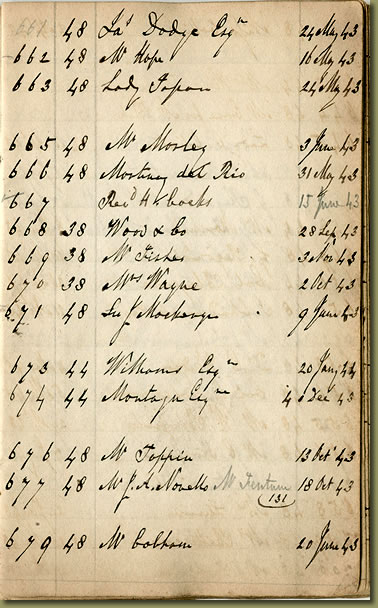 661 48 Jas Dodge Esqr 24 May 43
662 48 Mr Hope 16 May 43
663 48 Lady 24 May 43
665 48 Mr Morley 3 June 43
666 48 del Rio 31 May 43
667 Recd 4 15 June 43
668 38 Wood & Co 28 Sep 43
669 38 Mr Fisher 3 Novr 43
670 38 Mrs Wayne 2 Oct 43
671 48 9 June 43
673 44 Williams Esqre 20 Jany 44
674 44 Montagu Esqre Dec 43
676 48 Mr Toppin 13 Octr 43
677 48 Mr J. A. Novello 18 Oct 43
131
679 48 Mr 20 June 43